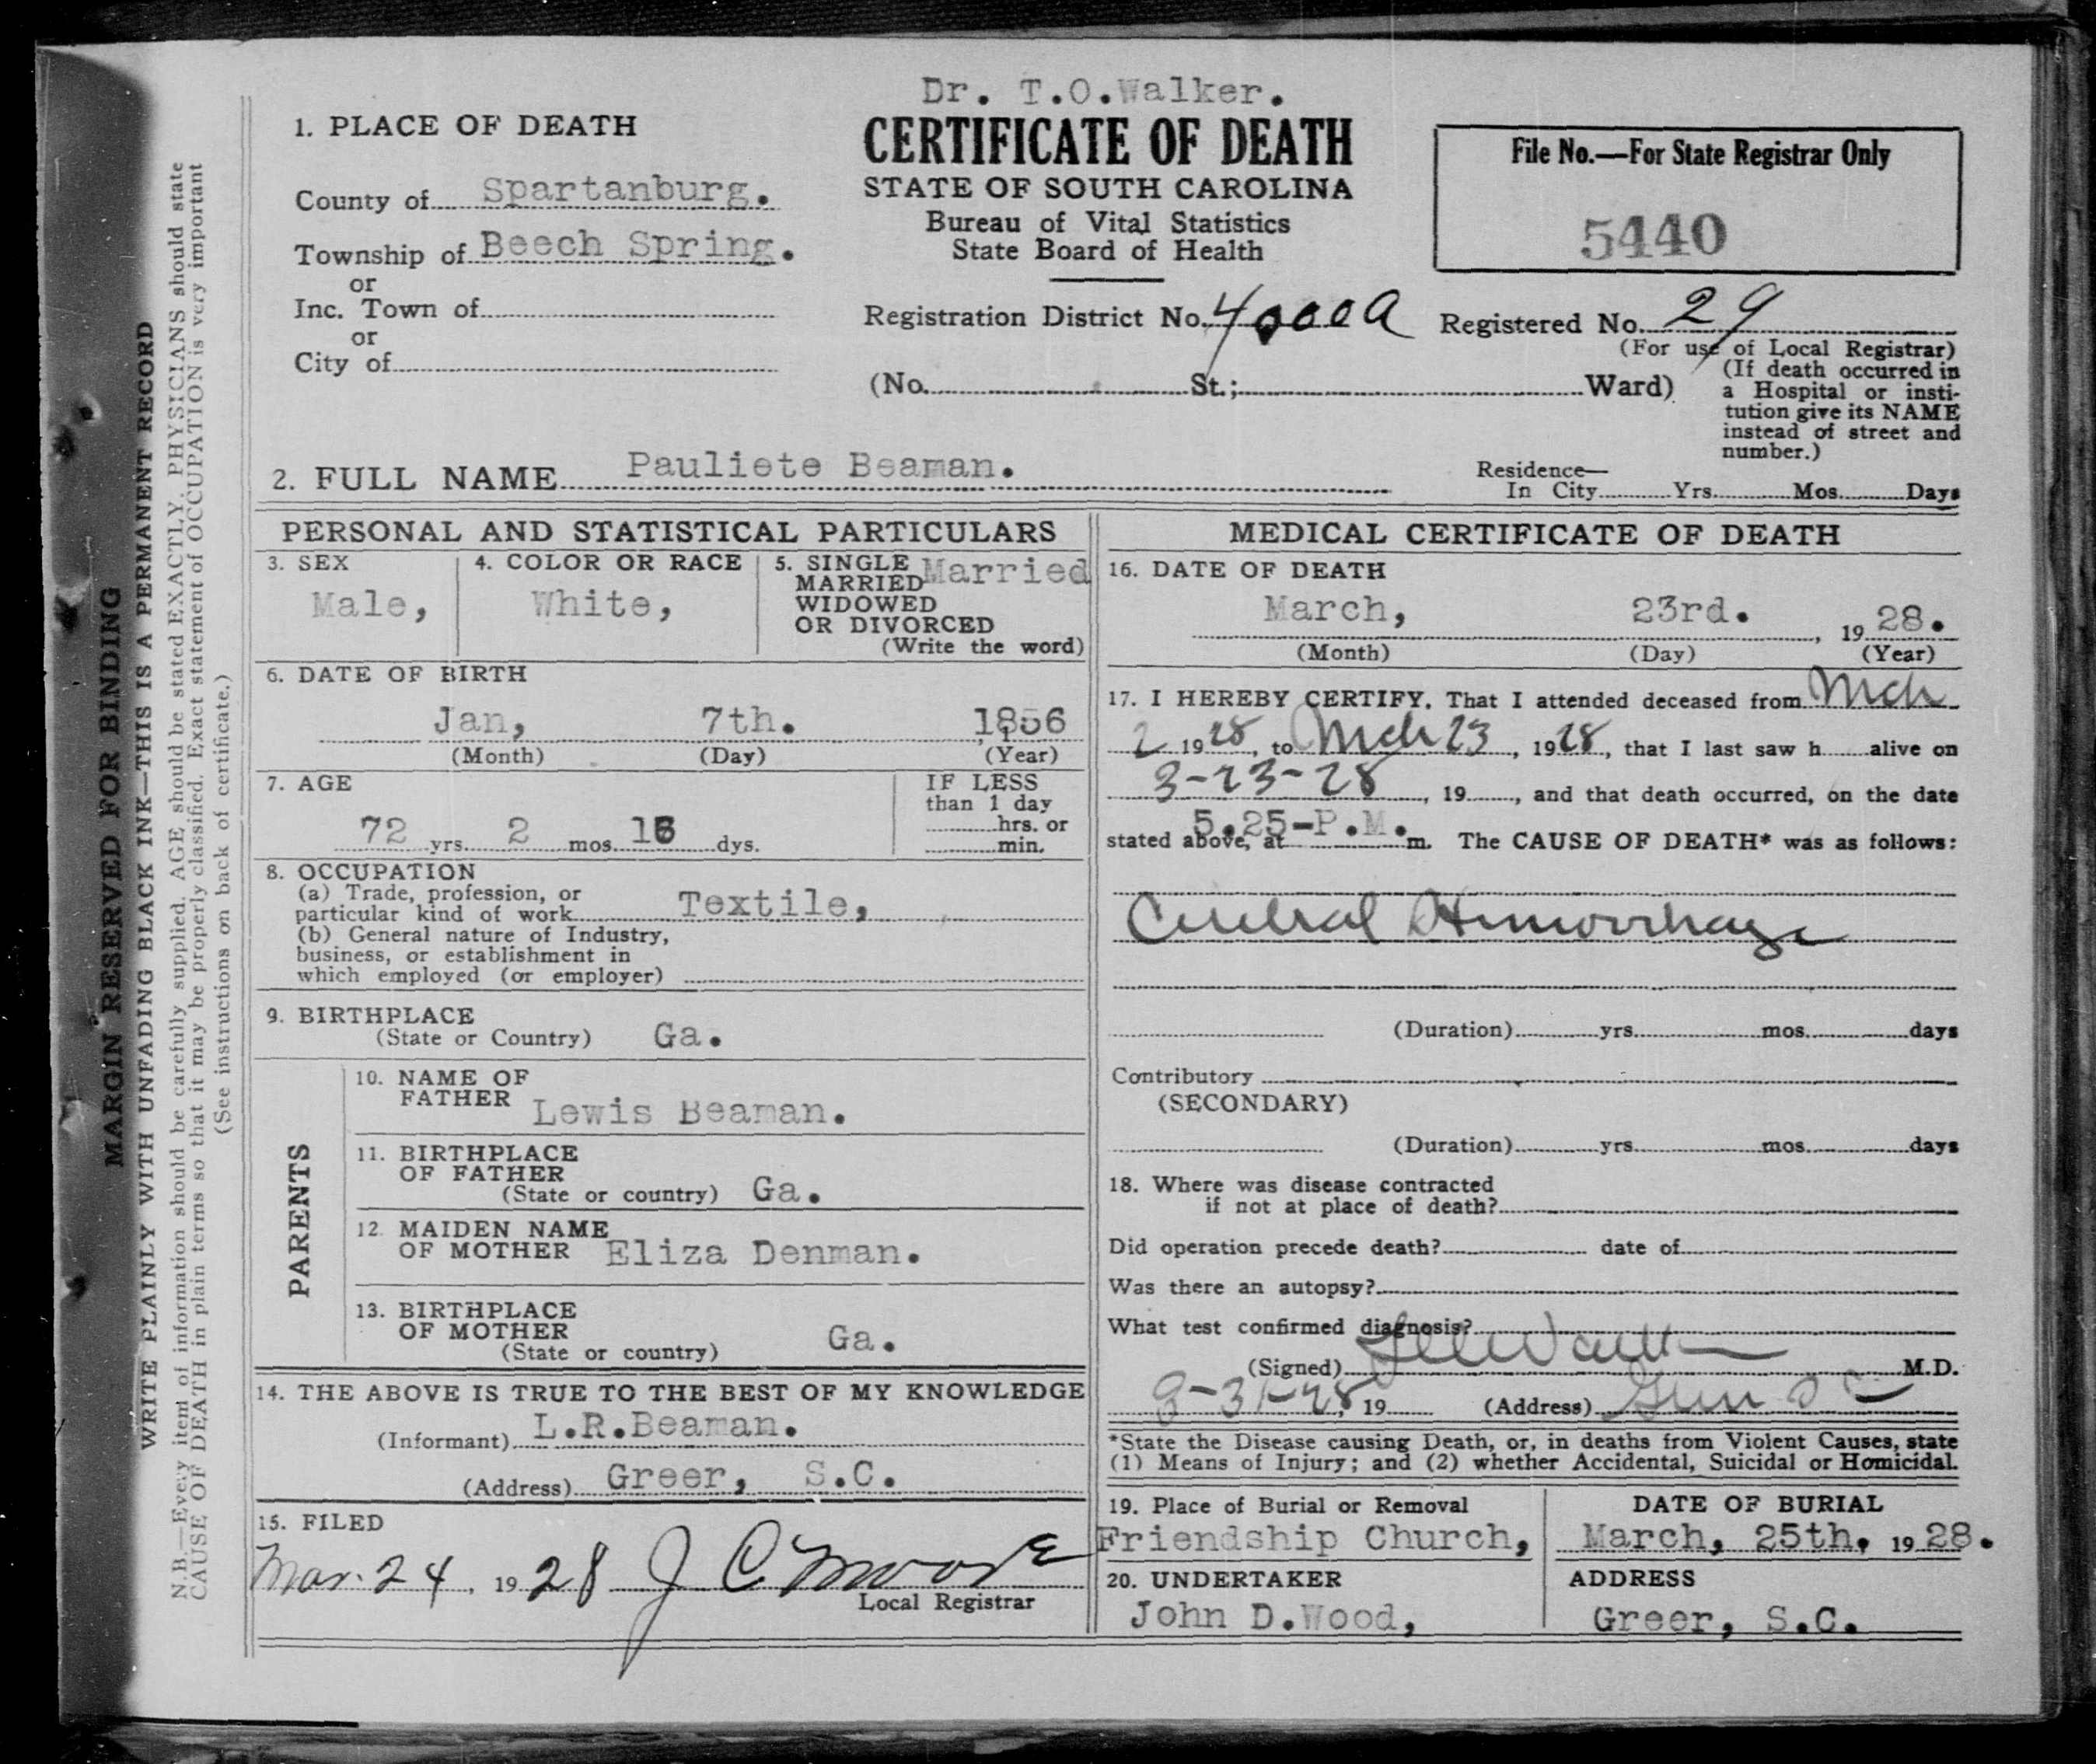 Dr. T.O.Walker.
1. PLACE OF DEATH
CERTIFICATE OF DEATH
STATE OF SOUTH CAROLINA
Bureau of Vital Statistics
State Board of Health
File No.—For State Registrar Only
5440
County of Spartanburg.
Township of Beech Spring.
or
Inc. Town of
or
City of
Registration District No. 4000A
Registered No. 29
(For use of Local Registrar)
(No. St.; Ward)
(If death occurred in
a Hospital or insti-
tution give its NAME
instead of street and
number.)
2. FULL NAME Pauliete Beaman.
Residence—
In City Yrs. Mos. Days
PERSONAL AND STATISTICAL PARTICULARS
3. SEX
Male,
4. COLOR OR RACE
White,
5. SINGLE
MARRIED
WIDOWED
OR DIVORCED
(Write the word)
Married
6. DATE OF BIRTH
Jan, 7th. 1856
(Month) (Day) (Year)
7. AGE
72 yrs. 2 mos. 16 dys.
IF LESS
than 1 day
hrs. or
min.
8. OCCUPATION
(a) Trade, profession, or
particular kind of work Textile,
(b) General nature of Industry,
business, or establishment in
which employed (or employer)
9. BIRTHPLACE
(State or Country) Ga.
PARENTS
10. NAME OF
FATHER Lewis Beaman.
11. BIRTHPLACE
OF FATHER
(State or country) Ga.
12. MAIDEN NAME
OF MOTHER Eliza Denman.
13. BIRTHPLACE
OF MOTHER
(State or country) Ga.
14. THE ABOVE IS TRUE TO THE BEST OF MY KNOWLEDGE
(Informant) L.R.Beaman.
(Address) Greer, S.C.
15. FILED
Mar. 24, 1928 J C Moore
Local Registrar
MEDICAL CERTIFICATE OF DEATH
16. DATE OF DEATH
March, 23rd. , 19 28.
(Month) (Day) (Year)
17. I HEREBY CERTIFY, That I attended deceased from Mch
2 1928, to Mch 23, 1928, that I last saw h alive on
3-23-28, 19 , and that death occurred, on the date
stated above, at 5.25-P.M. m. The CAUSE OF DEATH* was as follows:
Cerebral Hemorrhage
(Duration) yrs. mos. days
Contributory
(SECONDARY)
(Duration) yrs. mos. days
18. Where was disease contracted
if not at place of death?
Did operation precede death? date of
Was there an autopsy?
What test confirmed diagnosis?
(Signed) M.D.
3-31-28, 19 (Address) Greer S C
*State the Disease causing Death, or, in deaths from Violent Causes, state
(1) Means of Injury; and (2) whether Accidental, Suicidal or Homicidal.
19. Place of Burial or Removal
Friendship Church,
DATE OF BURIAL
March, 25th, 19 28.
20. UNDERTAKER
John D.Wood,
ADDRESS
Greer, S.C.
MARGIN RESERVED FOR BINDING
WRITE PLAINLY WITH UNFADING BLACK INK—THIS IS A PERMANENT RECORD
N.B.—Every item of information should be carefully supplied. AGE should be stated EXACTLY. PHYSICIANS should state
CAUSE OF DEATH in plain terms so that it may be properly classified. Exact statement of OCCUPATION is very important
(See instructions on back of certificate.)